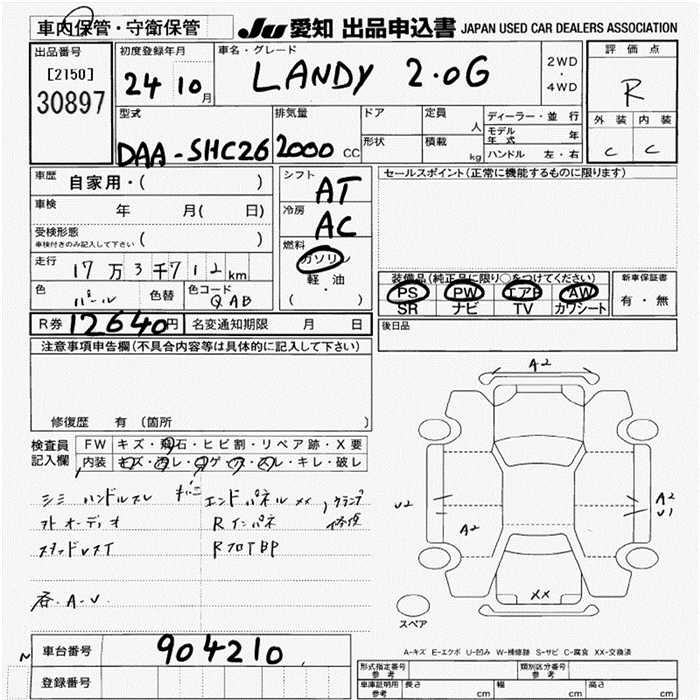 車内保管・守衛保管
JU 愛知 出品申込書 JAPAN USED CAR DEALERS ASSOCIATION
出品番号
[2150]
30897
初度登録年月
24 10月
車名・グレード
LANDY 2.0G
2WD
・
4WD
評価点
R
外装 内装
C C
型式
DAA-SHC26
排気量
2000 CC
ドア
形状
定員
人
積載
kg
ディーラー・並行
モデル年式 年
ハンドル 左・右
車歴 自家用・( )
車検 年 月( 日)
受検形態
車検付きのみ記入して下さい ( )
走行 17万3千712km
色 パール 色替
色コード QAB
シフト
AT
冷房
AC
燃料
ガソリン
軽・油
( )
セールスポイント(正常に機能するものに限ります)
装備品(純正品に限り〇をつけてください)
PS PW エアB AW
SR ナビ TV カワシート
新車保証書
有・無
R券 12640円
名変通知期限 月 日
後日品
注意事項申告欄(不具合内容等は具体的に記入して下さい)
修復歴 有 (箇所
検査員
記入欄
FW キズ・飛石・ヒビ割・リペア跡・X要
内装 キズ・汚レ・コゲ・ ・スレ・キレ・破レ
シミ ハンドルスレ エンドパネル XX , クランプ
オーディオ Rインパネ 修復
RフロアBP
A・U
A2
U2
A2
A2
U1
XX
スペア
A-キズ E-エクボ U-凹み W-補修跡 S-サビ C-腐食 XX-交換済
車台番号 904210
登録番号
型式指定番号
参考
類別区分番号
参考
車庫証明用
参考
長さ cm 幅 cm 高さ cm